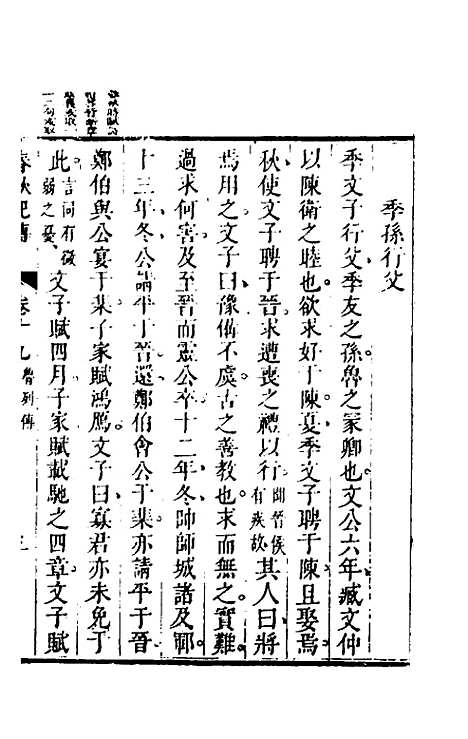 季孫行父
季文子行父季友之孫魯之冢卿也文公六年臧文仲
以陳衛之睦也欲求好于陳夏季文子聘于陳且娶焉
秋使文子聘于晉求遭喪之禮以行聞晉侯有疾故其人曰將
焉用之文子曰豫備不虞古之善教也求而無之實難
過求何害及至晉而靈公卒十二年冬帥師城諸及鄆
十三年冬公請平于晉還鄭伯會公于棐亦請平于晉
鄭伯與公宴于棐子家賦鴻鴈文子曰寡君亦未免于
此言同有微弱之憂文子賦四月子家賦載馳之四章文子賦
春秋紀傳 卷十九 魯列傳